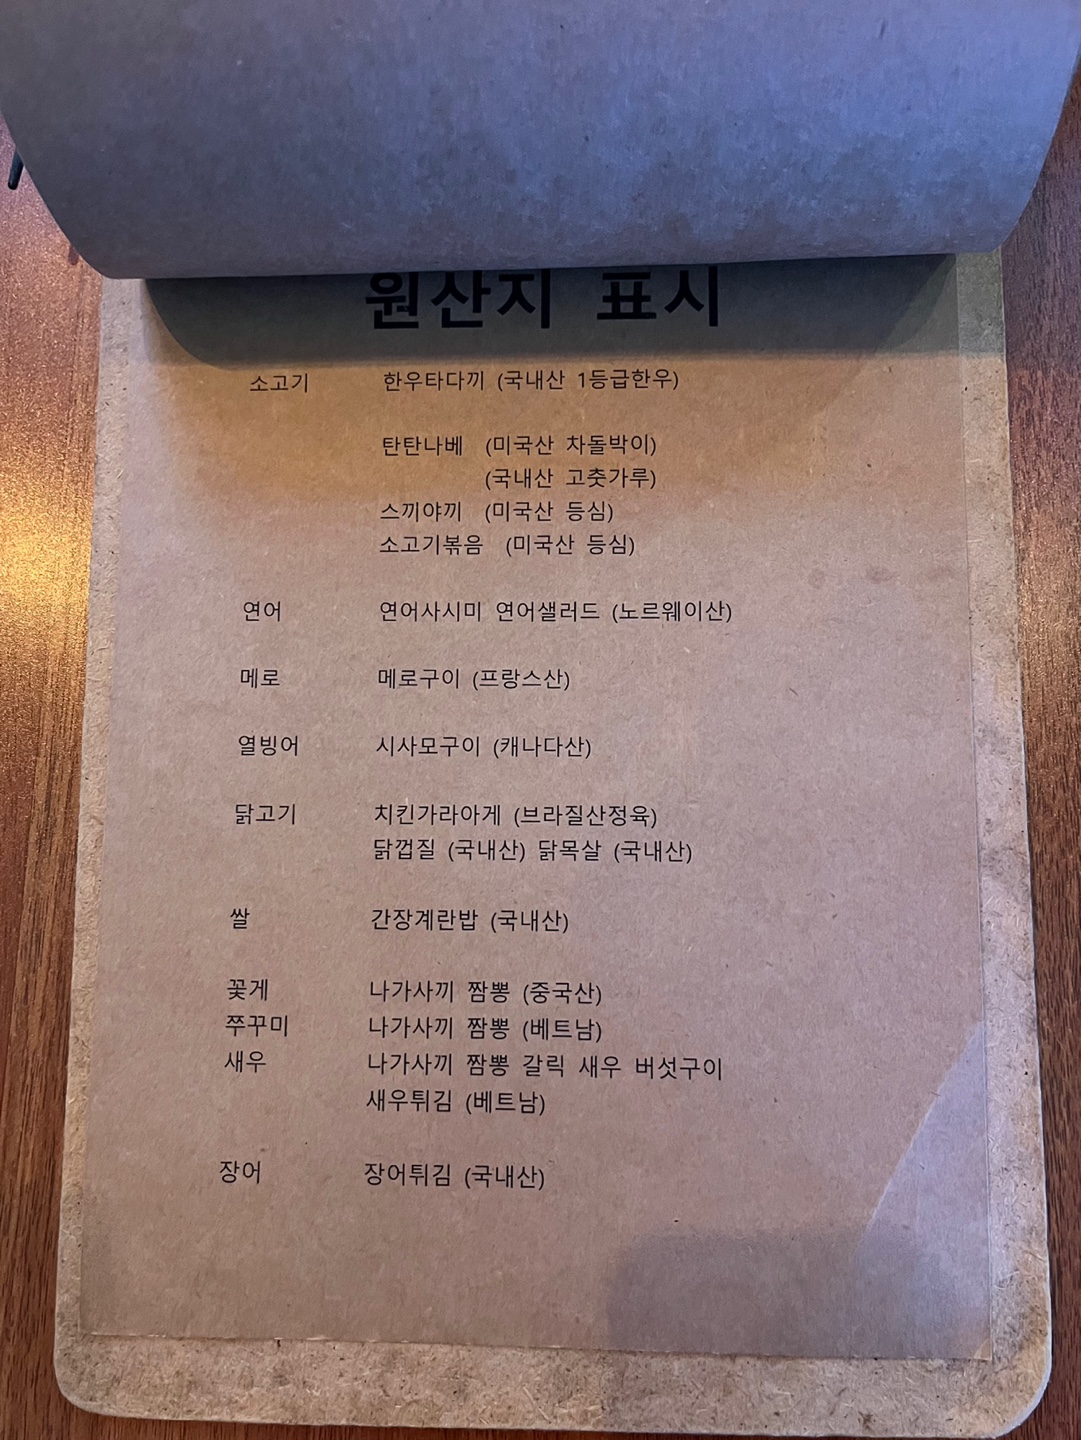 원산지 표시
소고기 한우타다끼 (국내산 1등급한우)
탄탄나베 (미국산 차돌박이)
(국내산 고춧가루)
스끼야끼 (미국산 등심)
소고기볶음 (미국산 등심)
연어 연어사시미 연어샐러드 (노르웨이산)
메로 메로구이 (프랑스산)
열빙어 시사모구이 (캐나다산)
닭고기 치킨가라아게 (브라질산정육)
닭껍질 (국내산) 닭목살 (국내산)
쌀 간장계란밥 (국내산)
꽃게 나가사끼 짬뽕 (중국산)
쭈꾸미 나가사끼 짬뽕 (베트남)
새우 나가사끼 짬뽕 갈릭 새우 버섯구이
새우튀김 (베트남)
장어 장어튀김 (국내산)